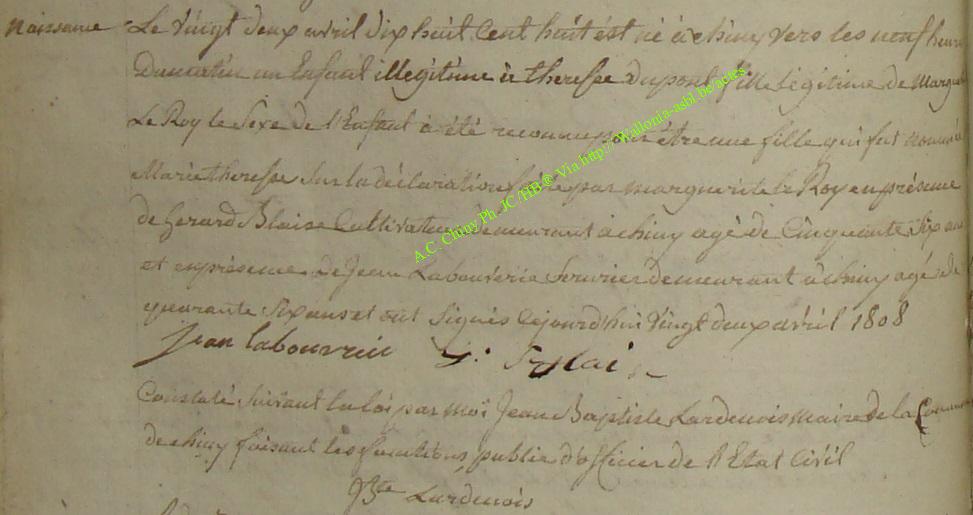 Naissance Le vingt deux avril dix huit Cent huit est né à chiny vers les neuf heure
Dumatin un Enfant illegitime à therese Dupont fille Légitime de Margu
Le Roy le Sexe de l'Enfant à été reconnu pour être une fille qui fut nommé
Marie therese Sur la déclaration faire par marguerite le Roy en présence
de Gerard Blaise Cultivateur demeurant à chiny agé de Cinquante Six ans
et en présence de Jean Labouverie demeurant à chiny agé de
quarante Six ans et ont Signés Cejourd'hui vingt deux avril 1808
Jean labouverie G:
Constaté Suivant la loi par moi Jean Baptiste Lardenois maire de la Commune
de chiny faisant les fonctions public d'officier de l'Etat Civil
JBte Lardenois
A.C. Chiny Ph. JC/HB @ Via http://wallonia-asbl.be/actes